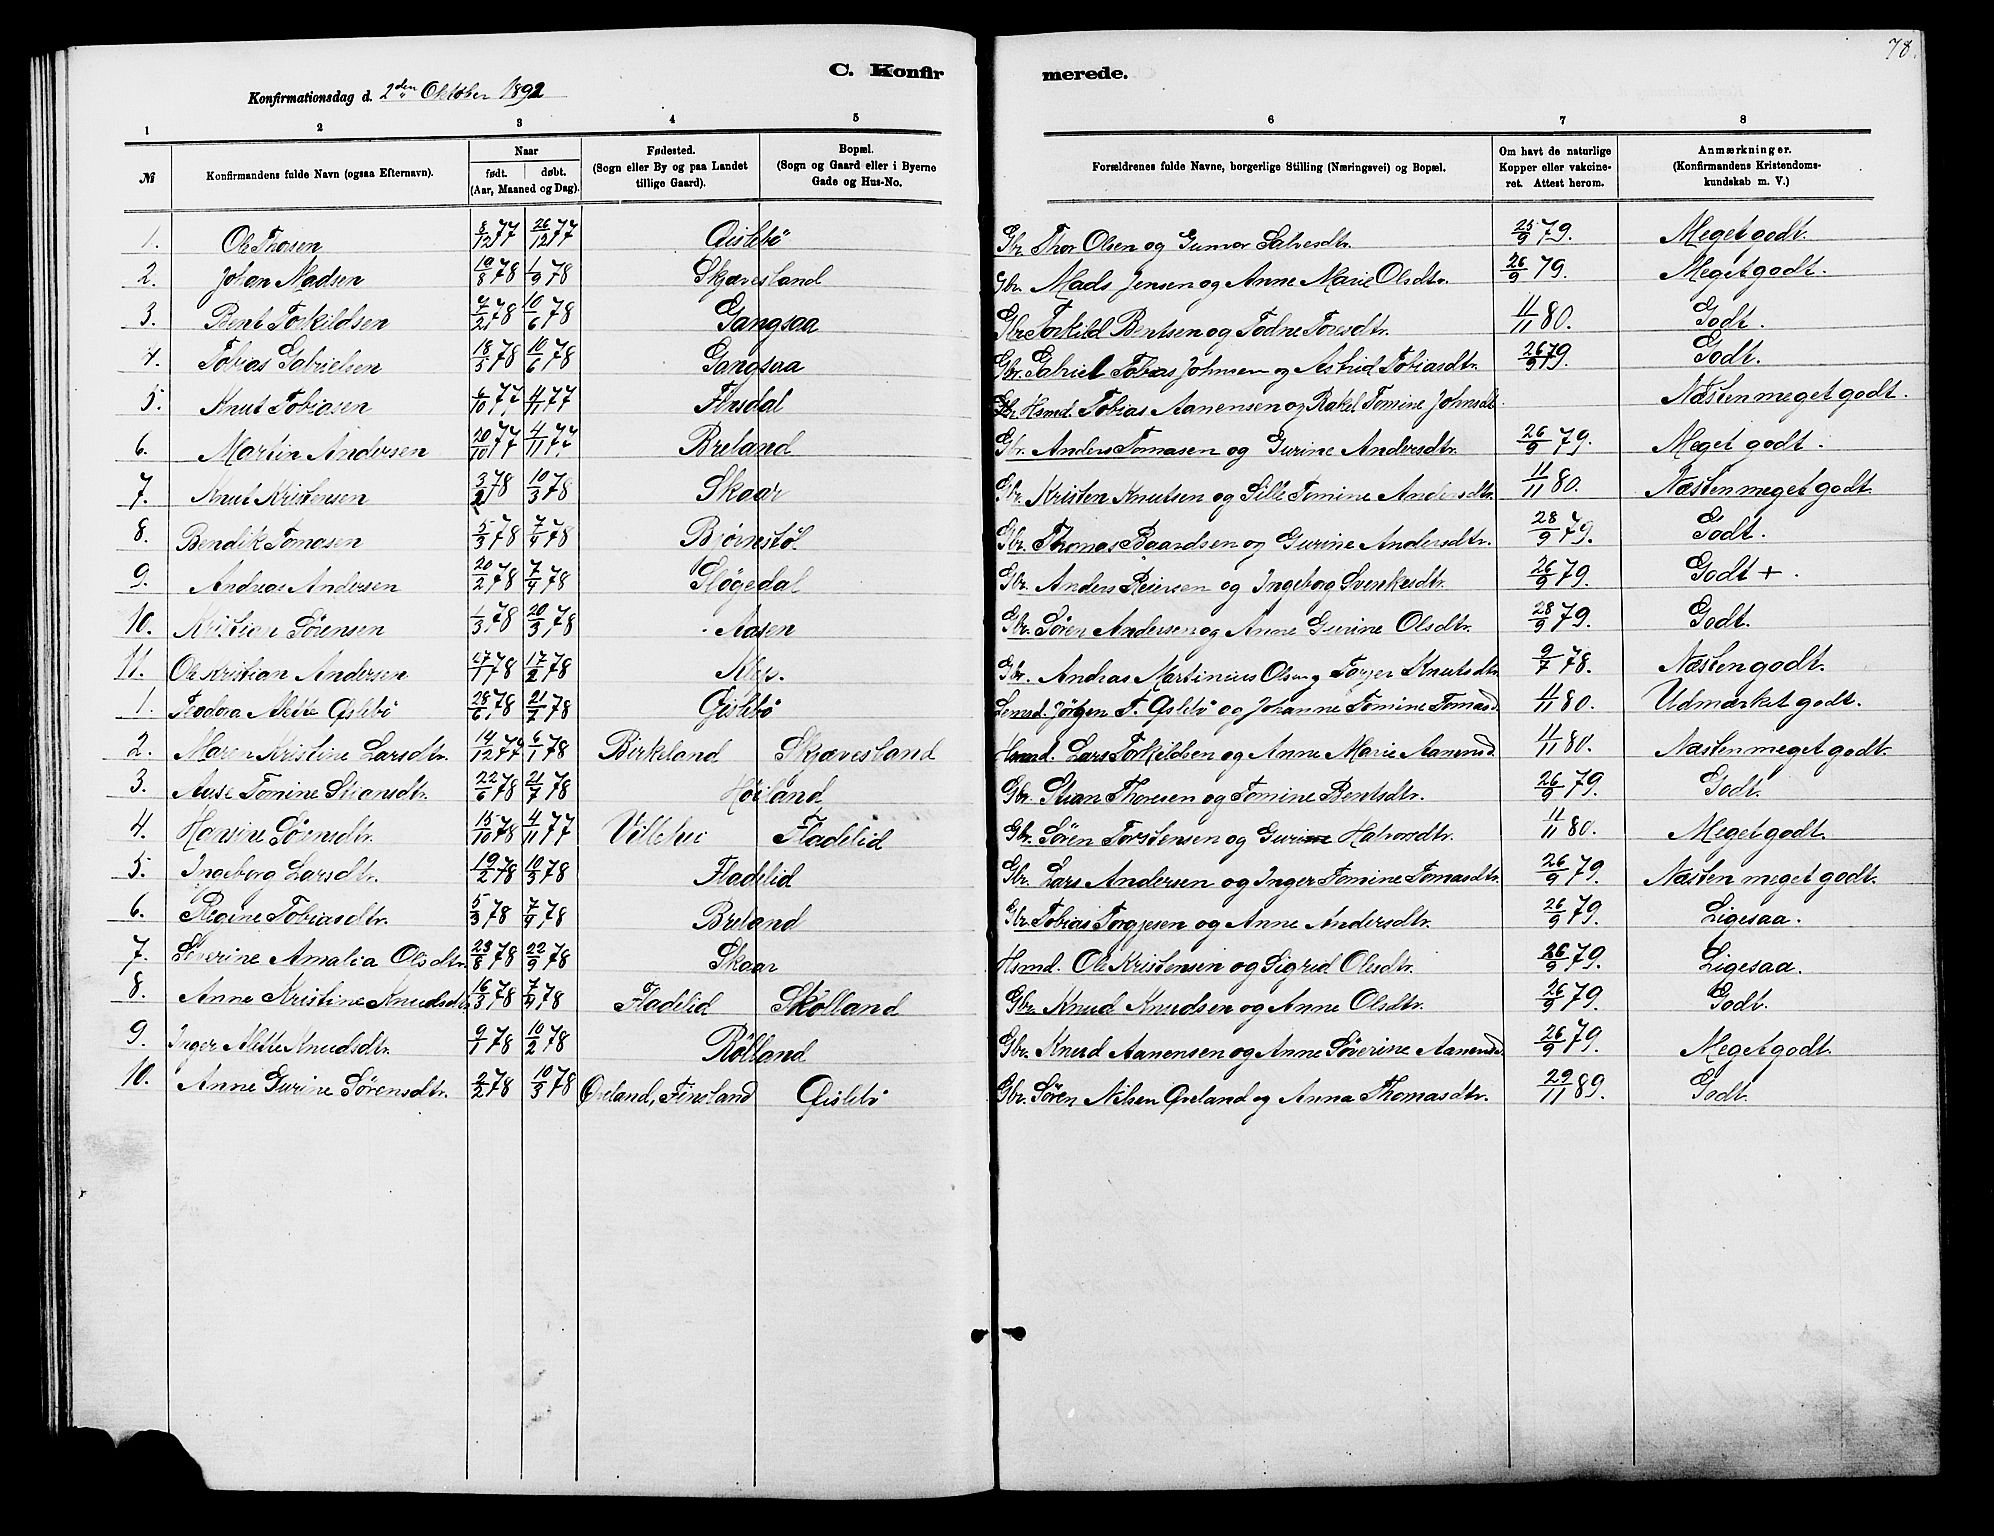 78.
C. Konfirmerede.
Konfirmationsdag d. 2den Oktober 1892
1 2 3 4 5 6 7 8
№ Konfirmandens fulde Navn (ogsaa Efternavn). Naar født. døbt. (Aar, Maaned og Dag). Fødested. (Sogn eller By og paa Landet tillige Gaard). Bopæl. (Sogn og Gaard eller i Byerne Gade og Hus-No. Forældrenes fulde Navne, borgerlige Stilling (Næringsvei) og Bopæl. Om havt de naturlige Kopper eller vakcineret. Attest herom. Anmærkninger. (Konfirmandens Kristendomskundskab m. V.)
1. Ole Thorsen 8/12 77 26/12 77 Øislebö Gbr. Thor Olsen og Gunvor Salvesdtr. 25/9 79. Meget godt.
2. Johan Madsen 10/8 78 1/9 78 Skjævesland Gbr. Mads Jensen og Anne Marie Olsdtr. 26/9 79. Meget godt.
3. Bent Torkildsen 78 10/6 78 Gangsaa Gbr Torkild Bentsen og Todne Toresdtr. 11/11 80. Godt.
4. Tobias Gabrielsen 18/5 78 10/6 78 Gangsaa Gbr. Gabriel Tobias Johnsen og Astrid Tobiasdtr. 26/9 79. Godt.
5. Knut Tobiasen 6/10 77 4/11 77 Finsdal Hsmd. Tobias Aanensen og Rakel Tomine Johnsdt. Næsten meget godt.
6. Martin Andersen 20/10 77 4/11 77 Breland Gbr. Anders Tomasen og Gurine Andersdtr. 26/9 79. Meget godt.
7. Knut Kristensen 3/2 78 10/3 78 Skaar Gbr. Kristen Knutsen og Sille Tomine Andersdtr. 11/11 80. Næsten meget godt.
8. Bendik Tomasen 5/3 78 7/4 78 Bjørnstøl Gbr. Thomas Baardsen og Gurine Andersdtr. 28/9 79. Godt.
9. Andreas Andersen 20/2 78 7/4 78 Sløgedal Gbr. Anders Reiersen og Ingeborg Svenkesdtr. 26/9 79. Godt +.
10. Kristian Sörensen 1/3 78 20/3 78 Aasen Gbr. Sören Andersen og Anne Gurine Olsdtr. 28/9 79. Godt.
11. Ole Kristian Andersen 17/1 78 17/2 78 Klep. Gbr. Andreas Martinius Olsen og Torjer Knutsdtr. 9/7 78. Næsten godt.
1. Teodora Alette Øslebö 28/6 78 21/7 78 Øislebö Lensd. Jörgen T. Øslebö og Johanne Tomine Tomasd. 11/11 80. Udmærket godt.
2. Maren Kristine Larsdtr. 14/12 77 6/1 78 Birkeland Skjævesland Hsmd. Lars Torkildsen og Anne Marie Aanensd. 11/11 80. Næsten meget godt.
3. Anse Tomine Stiansdtr. 22/6 78 21/7 78 Høiland Gbr. Stian Thoresen og Tomine Bentsdtr. 26/9 79. Godt.
4. Hansine Sörensdtr. 15/10 78 4/11 77 Fladelid Gbr. Sören Torstensen og Guri Halvorsdtr. 11/11 80. Meget godt.
5. Ingeborg Larsdtr. 19/2 78 10/3 78 Fladelid Gbr. Lars Andersen og Inger Tomine Tomasdtr. 26/9 79. Næsten meget godt.
6. Regine Tobiasdtr. 5/3 78 7/4 78 Breland Gbr. Tobias Torgjesen og Anne Andersdtr. 26/9 79. Ligesaa.
7. Severine Amalia Olsdtr. 23/8 78 22/9 78 Skaar Hsmd. Ole Kristensen og Sigrid Olesdtr. 26/9 79. Ligesaa.
8. Anne Kristine Knudsdtr. 16/3 78 7/4 78 Fladelid Skölland Gbr. Knud Knudsen og Anne Olsdtr. 26/9 79. Godt.
9. Inger Alette Knudsdtr. 9/1 78 10/2 78 Rölland Gbr. Knud Aanensen og Anne Söverine Aanensd 26/9 79. Meget godt.
10. Anne Gurine Sörensdtr. 2/2 78 10/3 78 Øveland, Finsland Øislebö Gbr. Sören Nilsen Øveland og Anna Thomasdtr. 29/11 89. Godt.